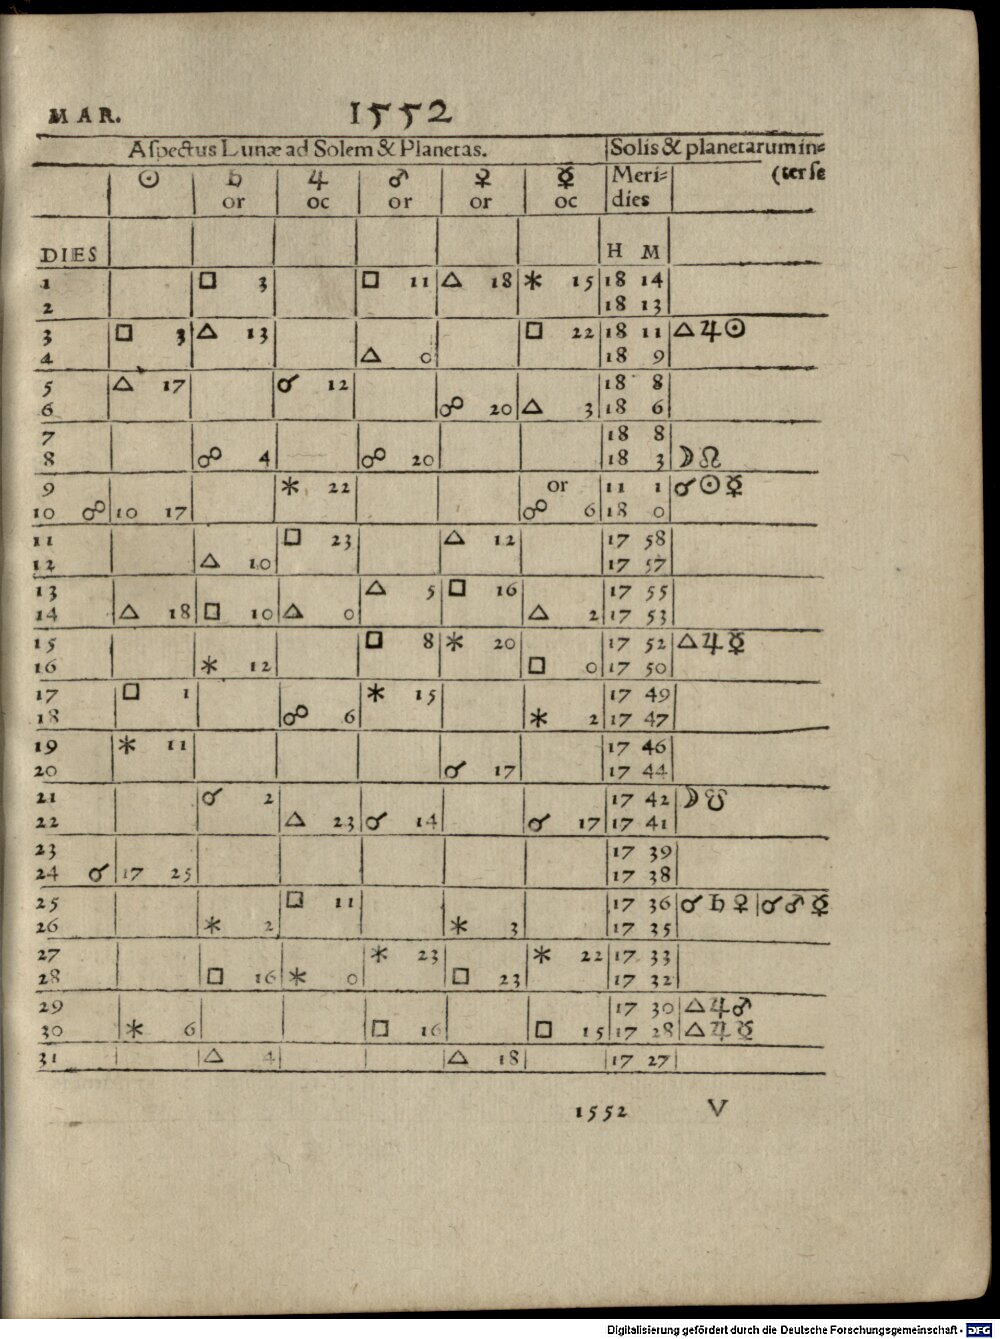 MAR. 1552
Aſpectus Lunæ ad Solem & Planetas. Solis & planetarum in=
☉ ♄ ♃ ♂ ♀ ☿ Meri= (ter ſe
or oc or or oc dies
DIES H M
1 □ 3 □ 11 △ 18 ⚹ 15 18 14
2 18 13
3 □ 3 △ 13 □ 22 18 11 △ ♃ ☉
4 △ 0 18 9
5 △ 17 ☌ 12 18 8
6 ☍ 20 △ 3 18 6
7 18 8
8 ☍ 4 ☍ 20 18 3 ☽ ☊
9 ⚹ 22 or 11 1 ☌ ☉ ☿
10 ☍ 10 17 ☍ 6 18 0
11 □ 23 △ 12 17 58
12 △ 10 17 57
13 △ 5 □ 16 17 55
14 △ 18 □ 10 △ 0 △ 2 17 53
15 □ 8 ⚹ 20 17 52 △ ♃ ☿
16 ⚹ 12 □ 0 17 50
17 □ 1 ⚹ 15 17 49
18 ☍ 6 ⚹ 2 17 47
19 ⚹ 11 17 46
20 ☌ 17 17 44
21 ☌ 2 17 42 ☽ ☋
22 △ 23 ☌ 14 ☌ 17 17 41
23 17 39
24 ☌ 17 25 17 38
25 □ 11 17 36 ☌ ♄ ♀ | ☌ ♂ ☿
26 ⚹ 2 ⚹ 3 17 35
27 ⚹ 23 ⚹ 22 17 33
28 □ 16 ⚹ 0 □ 23 17 32
29 17 30 △ ♃ ♂
30 ⚹ 6 □ 16 □ 15 17 28 △ ♃ ☿
31 △ 4 △ 18 17 27
1552 V
Digitalisierung gefördert durch die Deutsche Forschungsgemeinschaft - DFG